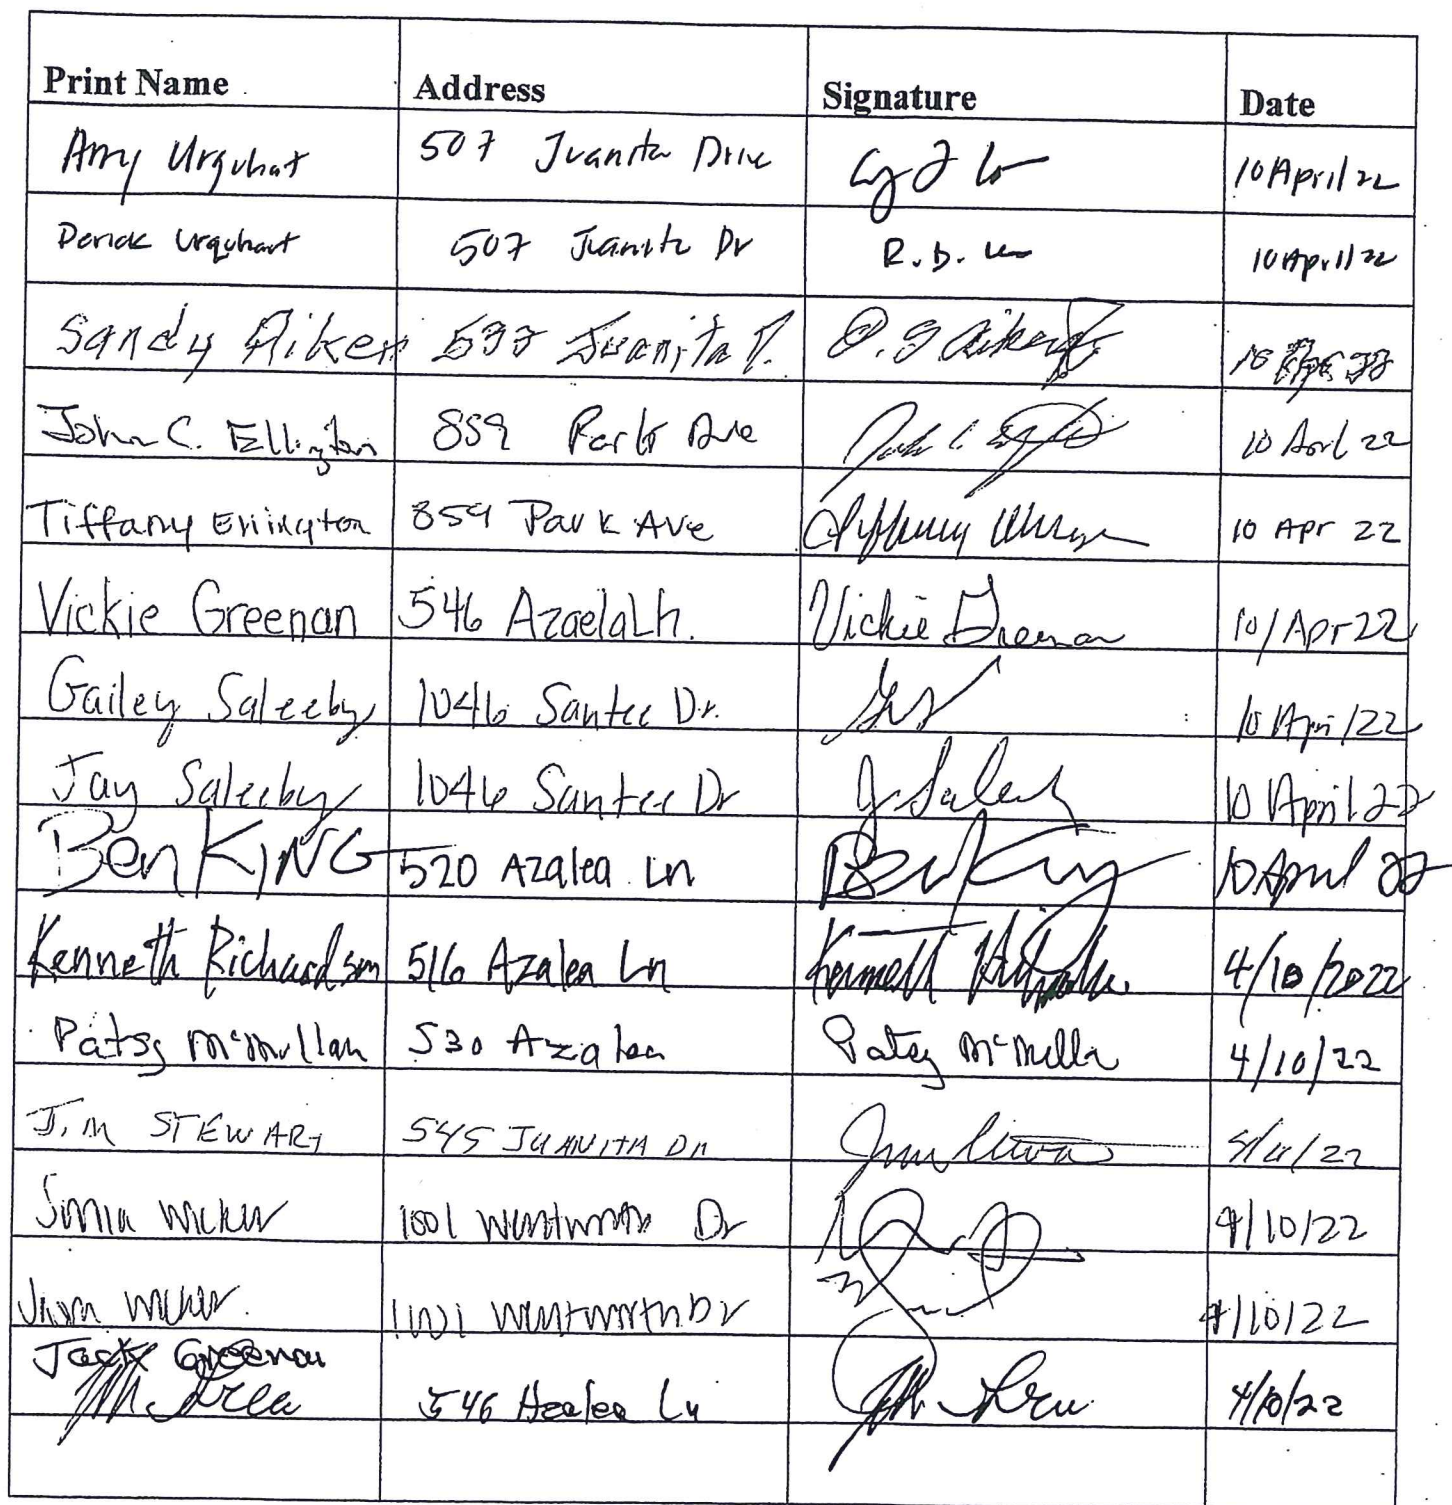 Print Name Address Signature Date
Amy Urquhat 507 Juanita Drive 10 April 22
Derick Urquhart 507 Juanita Dr R.D. 10 April 22
Sandy Aiken Juanita D. O. G Aiken
John C. Ellington 859 Park Ave John C. 10 Aprl 22
Tiffany Ellington 859 Park Ave Tiffany 10 Apr 22
Vickie Greenan 546 Azaela Ln. Vickie Greenan 10/Apr 22
Gailey Saleeby 1046 Santee Dr. 10 April 22
Jay Saleeby 1046 Santee Dr J. Saleeb 10 April 22
Ben KING 520 Azalea Ln Ben King 10 April 22
Kenneth Richardson 516 Azalea Ln Kenneth 4/10/2022
Patsy McMullan 530 Azalea Patsy McMulla 4/10/22
Jim STEWART 545 JUANITA Dr Jim /22
Wentworth Dr 4/10/22
Wentworth Dr 4/10/22
Jack Greenan
546 Azalea Ln 4/10/22